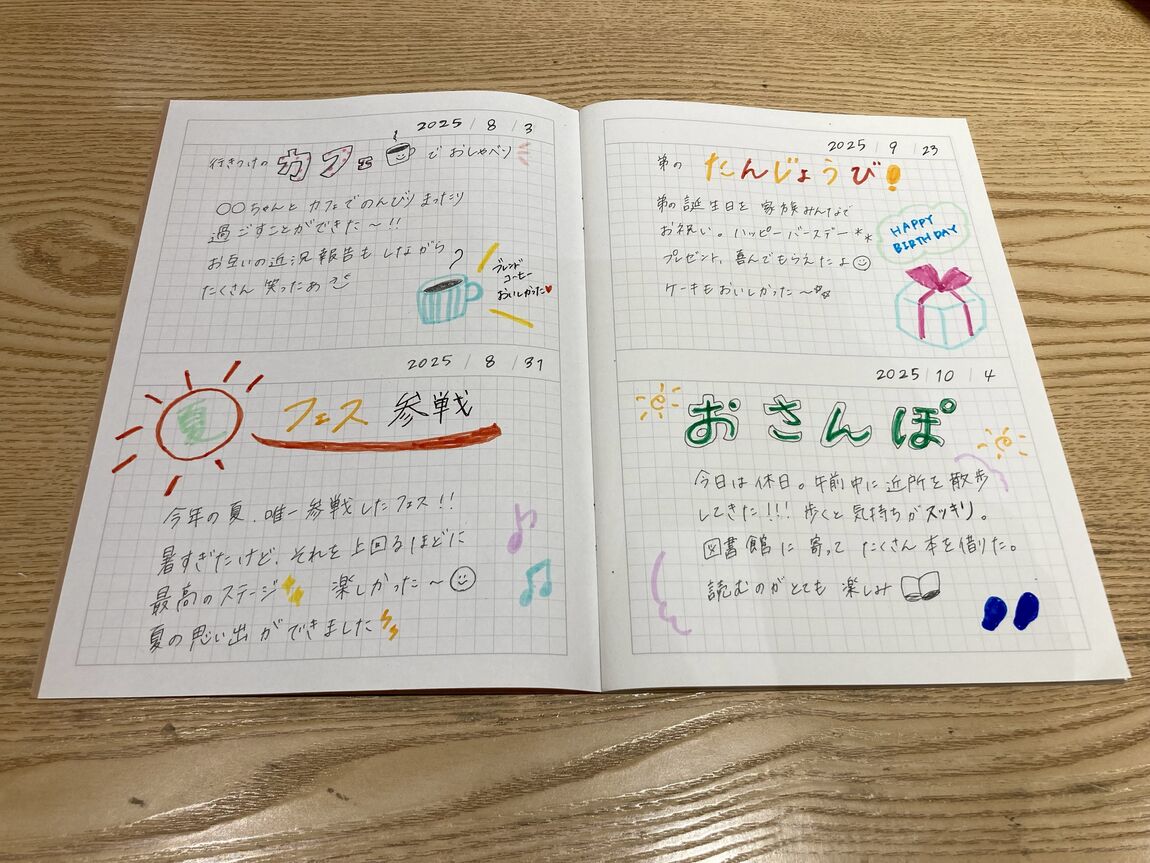 2025 / 8 / 3
行きつけの カフェ で おしゃべり
〇〇ちゃんと カフェでのんびり まったり
過ごすことができた〜!!
お互いの近況報告もしながら
たくさん 笑ったぁ
ブレンド
コーヒー
おいしかった♥
2025 / 8 / 31
夏 フェス 参戦
今年の夏、唯一参戦したフェス!!
暑すぎたけど、それを上回るほどに
最高のステージ 楽しかった〜
夏の思い出ができました
2025 / 9 / 23
弟の たんじょうび!
弟の誕生日を 家族みんなで
お祝い。ハッピーバースデー**
プレゼント、喜んでもらえたよ
ケーキもおいしかった〜
HAPPY
BIRTHDAY
2025 / 10 / 4
おさんぽ
今日は休日。午前中に近所を散歩
してきた!!! 歩くと気持ちがスッキリ。
図書館に寄って たくさん本を借りた。
読むのがとても 楽しみ